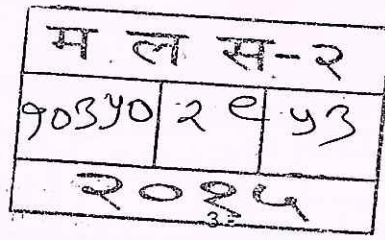 म ल स-२
१०३५० २९ ५३
२०१५
3